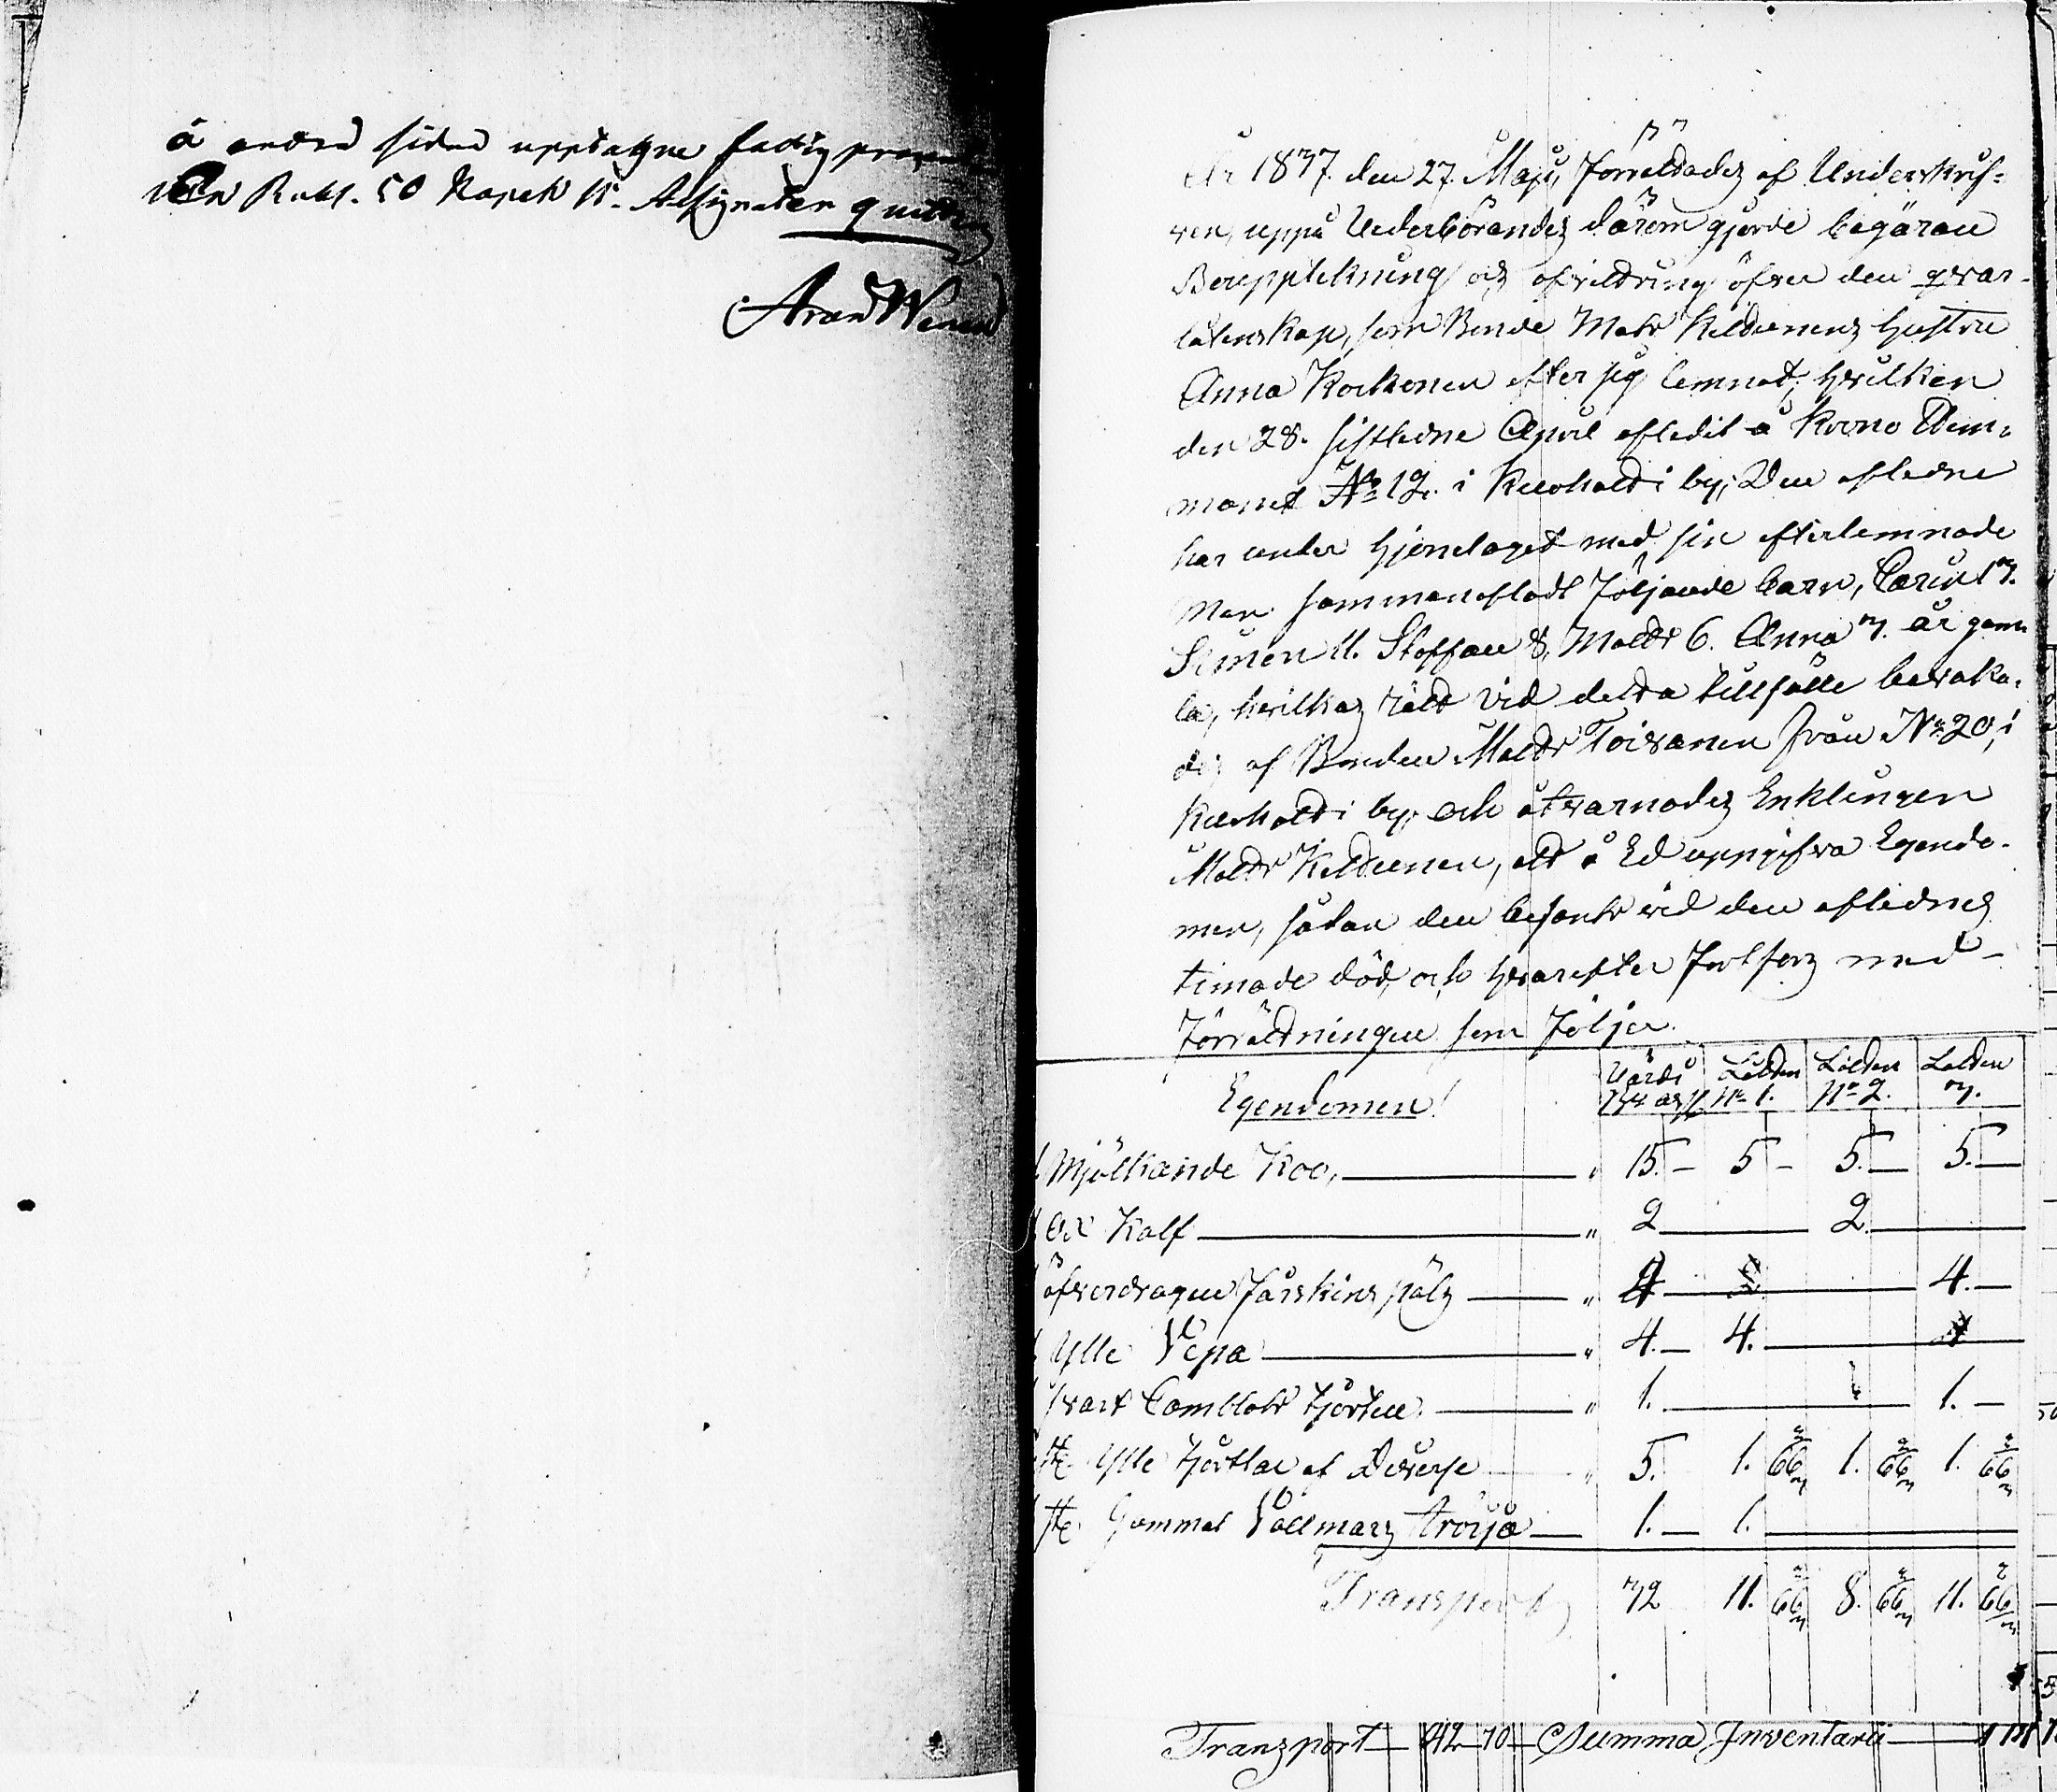 å andra sidan upptagne fattig procent
En Rubl. 50 Kopek B. Assignater quitteras
År 1837. den 27. Maji, förrättades af Underskrif-
ven, uppå Vederbörandes därom gjorde begäran
Bouppteckning och afvittring öfver den qvar-
låtenskap, som Bonde Matts Kildunens hustru
Anna Kockonen efter sig lemnat; hvilken
den 28. sistledne April afledit å Krono Hem-
manet No 12. i by; Den afledne
har under hjonelaget med sin efterlemnade
Man sammanaflat följande barn, Carin 17.
Simon 11. Staffan 8, Matts 6. Anna 3. år gam-
la, hvilkas rätt vid detta tillfälle bevaka-
des af Bonden Matts Toivanen från No 20, i
by; och åtvarnades Enklingen
Matts Kildunen, att å Ed uppgifva Egendo-
men, sådan den befants vid den aflednes
timade död, och hvarefter fortfors med
förrättningen som följer.
Egendomen! Värde Lotten No 1. Lotten No 2. Lotten 3.
1 Mjölkande Koo, " 15. – 5 – 5. – 5. –
1 Ox Kalf " 2 2.
1 öfverdragen fårskins päls " 4 4. –
1 Ylle Vepa " 4. – 4.
1 svart Camblots kjortel " 1. 1. –
st. Ylle kjortlar af Diverse " 5. 1. 66 2/3 1. 66 2/3 1. 66 2/3
1 st. Gammal Vallmars tröija 1. – 1.
Transport 32 11. 66 2/3 8. 66 2/3 11. 66 2/3
Transport 42 70 Summa Inventarii